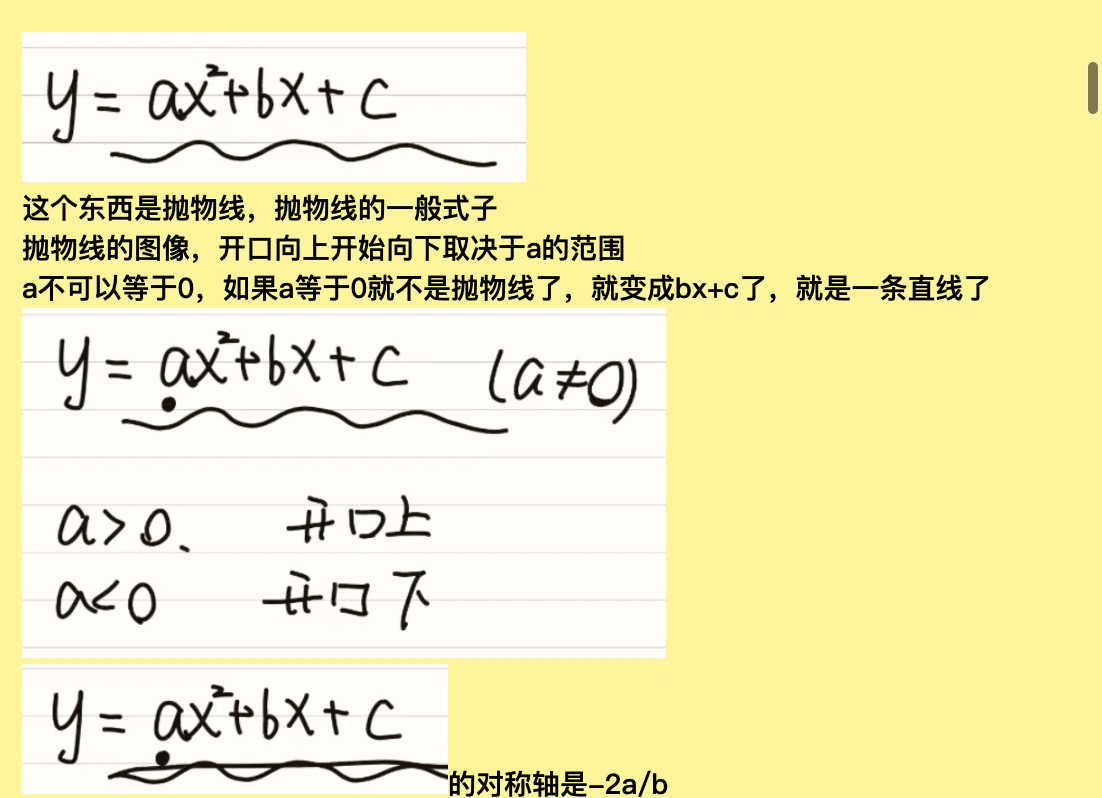 y = ax²+bx+c
这个东西是抛物线，抛物线的一般式子
抛物线的图像，开口向上开始向下取决于a的范围
a不可以等于0，如果a等于0就不是抛物线了，就变成bx+c了，就是一条直线了
y = ax²+bx+c (a≠0)
a>0、 开口上
a<0 开口下
y = ax²+bx+c 的对称轴是–2a/b